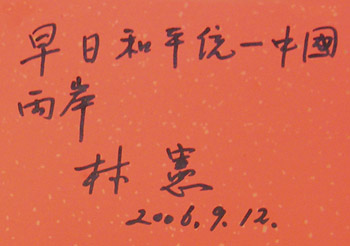 早日和平统一中國
两岸
林憲
2006.9.12.